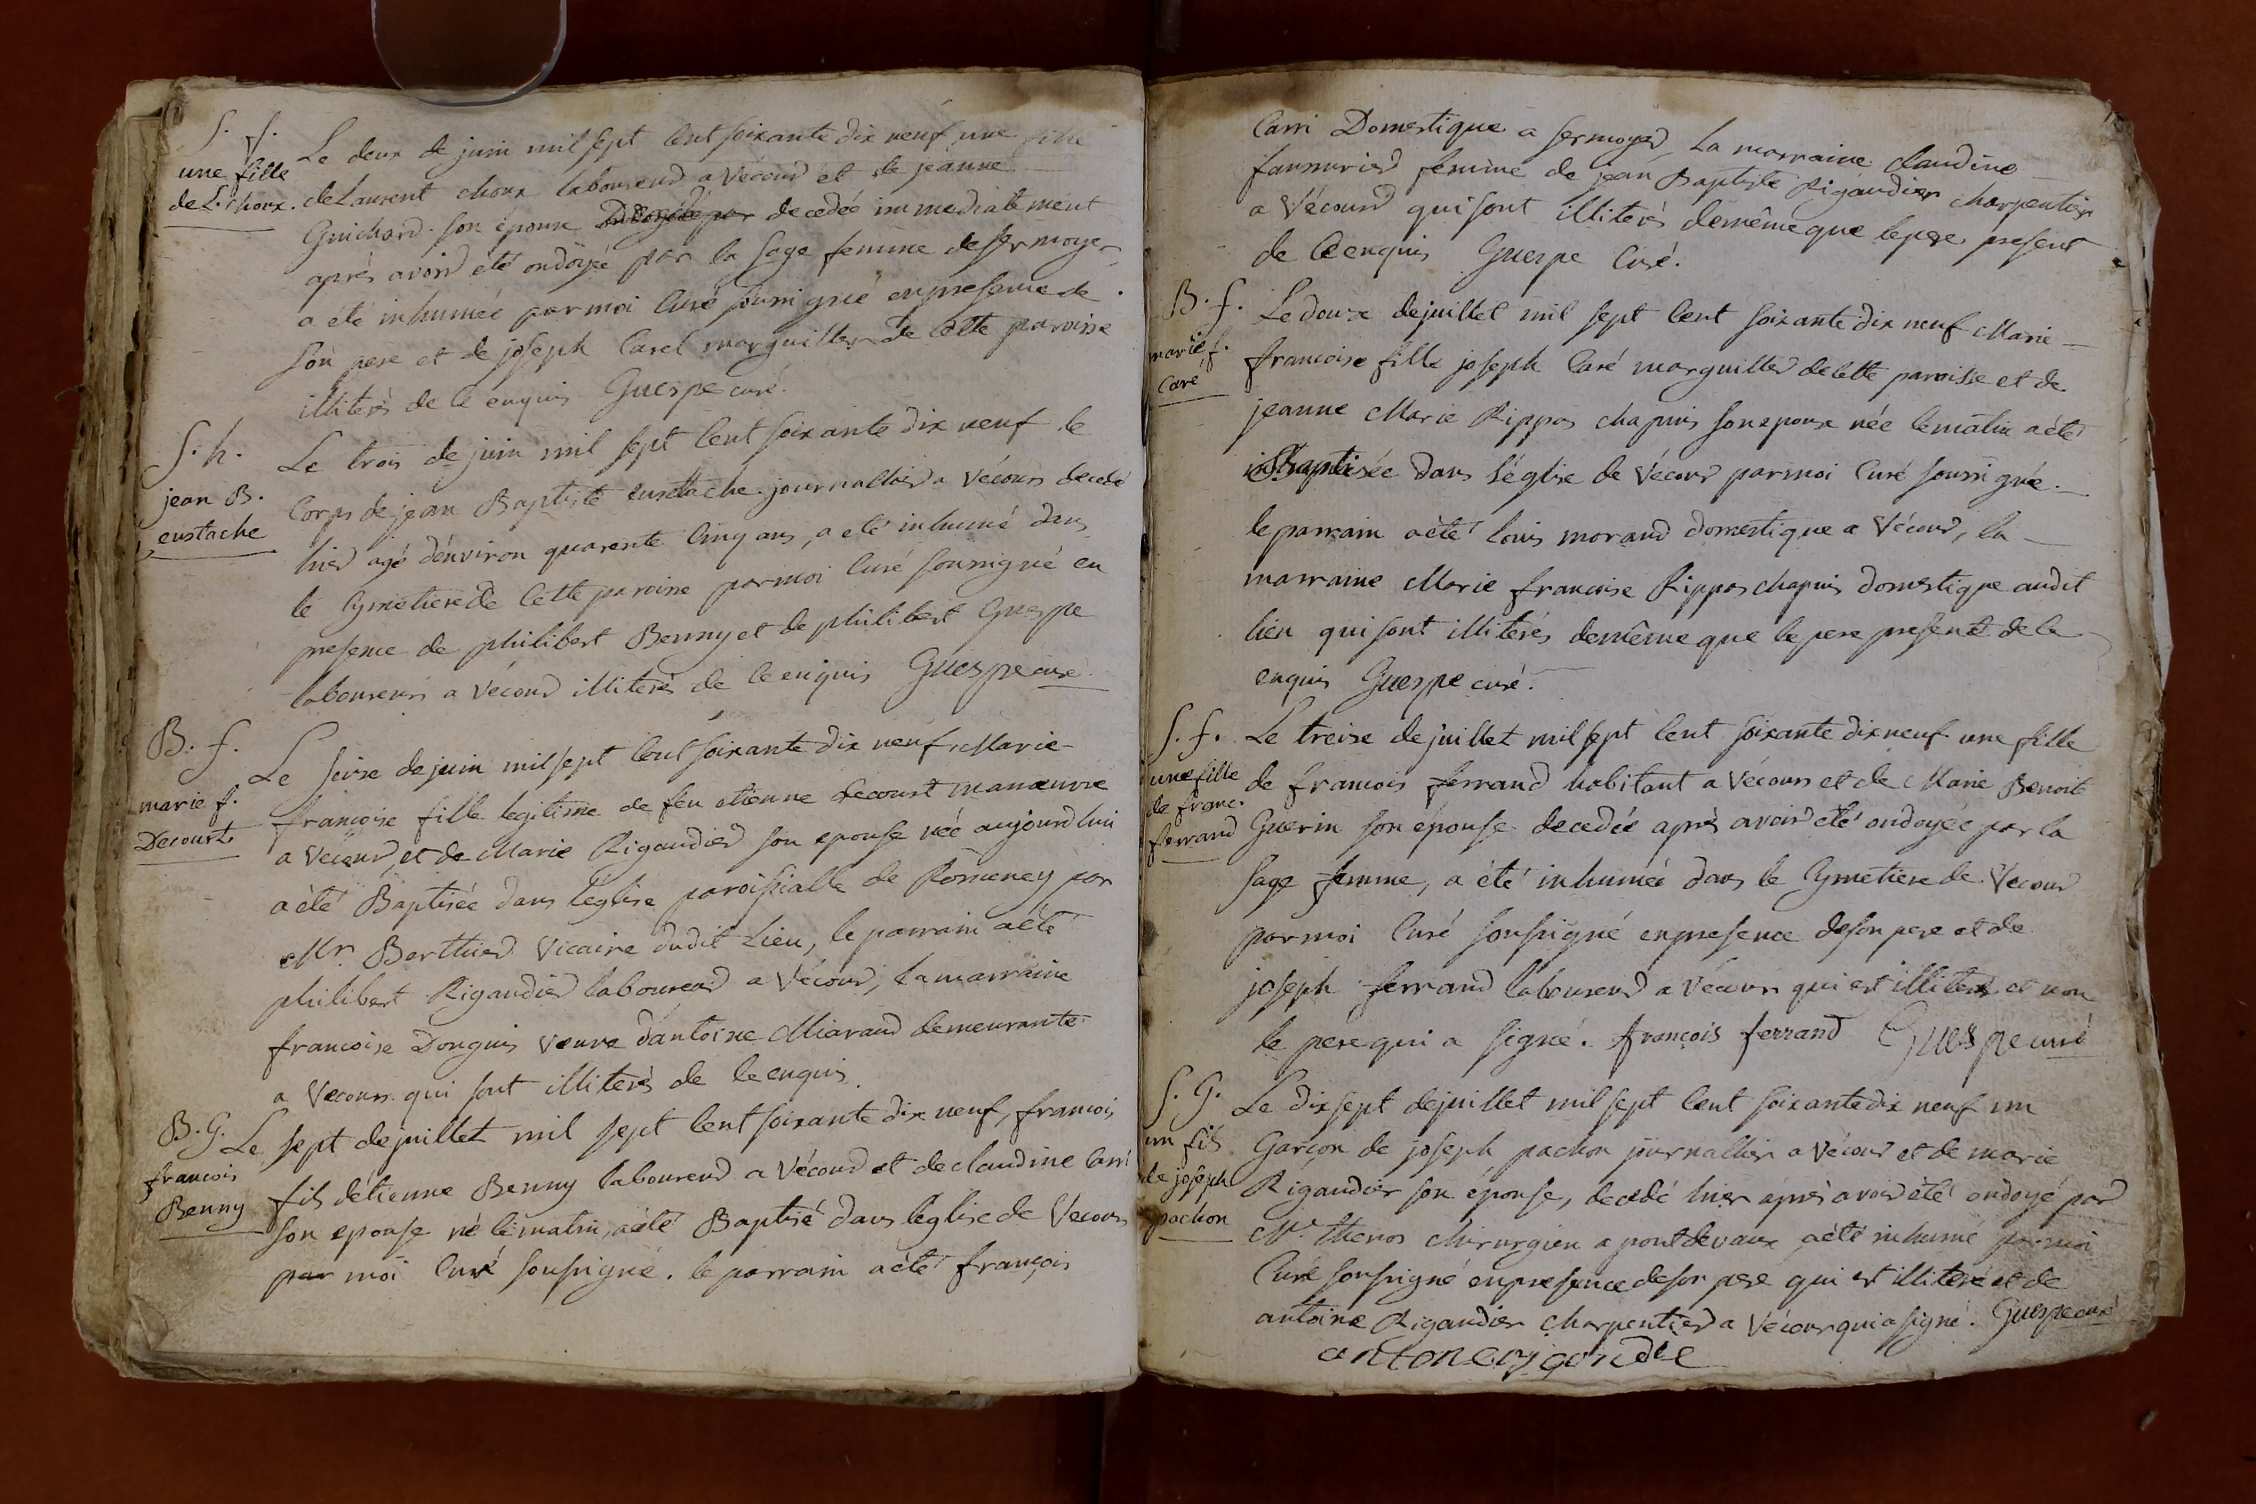 S. f.
une fille
de L. choux.
Le deux de juin mil sept cent soixante dix neuf une fille
de Laurent choux laboureur a Vécour et de jeanne
Guichard son épouse decedée immediatement
après avoir été ondoyée par la sage femme de sermoyer,
a été inhumée par moi curé soussigné en presence de
son pere et de joseph Carel marguiller de cette paroisse
illiterés de ce enquis Guespe curé.
S. h.
jean B.
eustache
Le trois de juin mil sept cent soixante dix neuf le
corps de jean Baptiste eustache journallier a Vécours decedé
hier agé d'environ quarente cinq ans, a été inhumé dans
le cymetiere de cette paroisse par moi curé soussigné en
presence de philibert Benny et de philibert Guespe
laboureurs a Vécour illiterés de ce enquis Guespe curé
B. f.
marie f.
Decourt
Le seize de juin mil sept cent soixante dix neuf, Marie
francoise fille legitime de feu etienne decourt manœuvre
a Vécour, et de Marie Rigaudier son epouse née aujourdhui
a été Baptisée dans l'église paroissialle de Romeney par
Mr. Berthier Vicaire dudit Lieu, le parrain a été
philibert Rigaudier laboureur a Vécour, la marraine
francoise Donguis veuve d'antoine Miaraud demeurante
a Vecours qui sont illiterés de ce enquis.
B. G.
francois
Benny
Le sept de juillet mil sept cent soixante dix neuf, francois
fils détienne Benny laboureur a Vécour et de claudine Carri
son epouse né ce matin, a été Baptisé dans l'église de Vecours
par moi curé soussigné. le parrain a été françois
Carri Domestique a sermoyer, La marraine claudine
femme de jean Baptiste Rigaudier charpentier
a Vécour qui sont illiterés de même que le pere present
de ce enquis Guespe curé.
B. f.
marie f.
Caré
Le douze de juillet mil sept cent soixante dix neuf Marie
francoise fille joseph Caré marguiller de cette paroisse et de
jeanne Marie Rippas chapuis son epouse née ce matin a été
Baptisée dans l'église de Vécour par moi curé soussigné.
le parrain a été louis morand domestique a Vécour, la
marraine Marie francoise Rippas chapuis domestique audit
lieu qui sont illiterés de même que le pere present de ce
enquis Guespe curé.
S. f.
une fille
de franc.
ferrand
Le treize de juillet mil sept cent soixante dix neuf une fille
de francois ferrand habitant a Vécours et de Marie Benoite
Guerin son épouse decedée après avoir été ondoyée par la
sage femme, a été inhumée dans le Cymetiere de Vecour
par moi curé soussigné en presence de son pere et de
joseph ferrand laboureur a Vécours qui est illiteré et non
le pere qui a signé. françois ferrand Guespe curé
S. G.
un fils
de joseph
pachon
Le dix sept de juillet mil sept cent soixante dix neuf un
Garçon de joseph pachon journallier a Vécour et de marie
Rigaudier son épouse, decedé hier après avoir été ondoyé par
Mr. chirurgien a pontdevaux a été inhumé par moi
Curé soussigné en presence de son pere qui est illiteré et de
antoine Rigaudier charpentier a Vécour qui a signé. Guespe curé